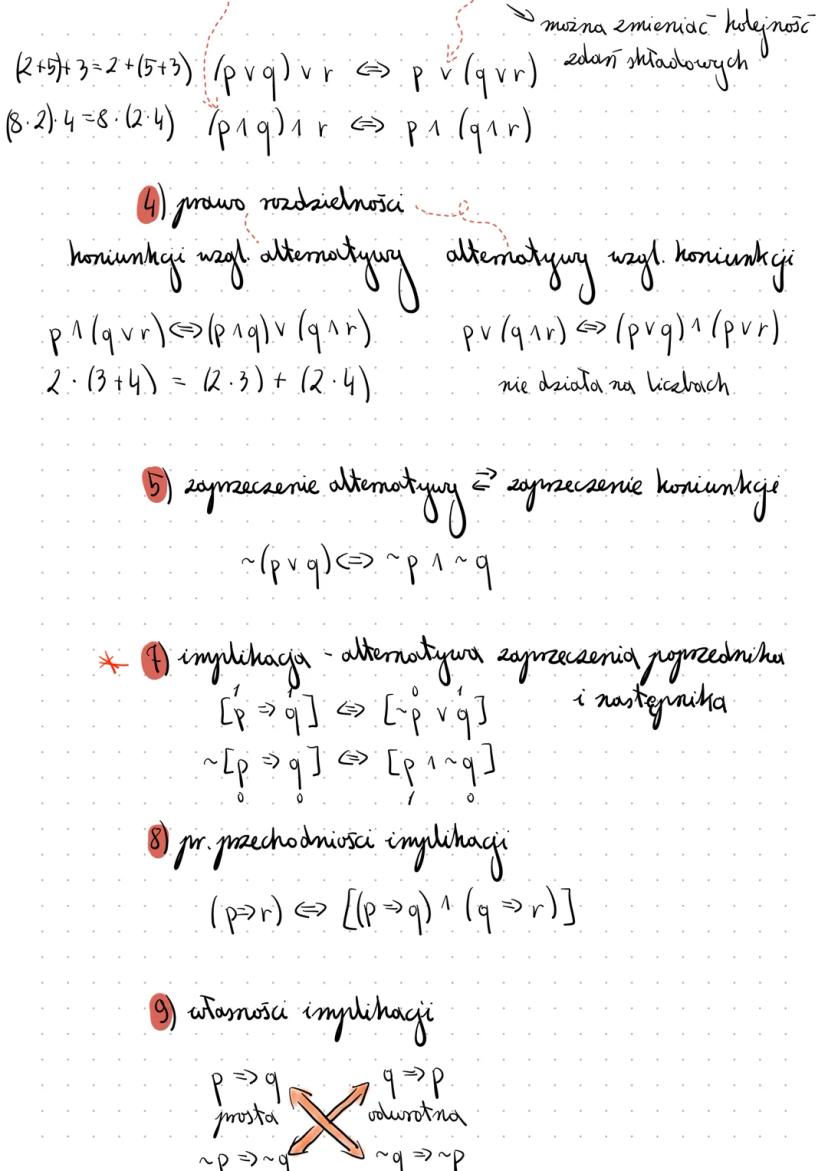 można zmieniać kolejność
zdań składowych
(2+5)+3=2+(5+3) (p ∨ q) ∨ r ⇔ p ∨ (q ∨ r)
(8·2)·4=8·(2·4) (p ∧ q) ∧ r ⇔ p ∧ (q ∧ r)
4) prawo rozdzielności
koniunkcji wzgl. alternatywy alternatywy wzgl. koniunkcji
p ∧ (q ∨ r) ⇔ (p ∧ q) ∨ (q ∧ r) p ∨ (q ∧ r) ⇔ (p ∨ q) ∧ (p ∨ r)
2 · (3+4) = (2·3) + (2·4) nie działa na liczbach
5) zaprzeczenie alternatywy ⇄ zaprzeczenie koniunkcji
~(p ∨ q) ⇔ ~p ∧ ~q
* 7) implikacja - alternatywa zaprzeczenia poprzednika
i następnika
1 1 0 1
[p ⇒ q] ⇔ [~p ∨ q]
~[p ⇒ q] ⇔ [p ∧ ~q]
0 0 1 0
8) pr. przechodniości implikacji
(p ⇒ r) ⇔ [(p ⇒ q) ∧ (q ⇒ r)]
9) własności implikacji
p ⇒ q q ⇒ p
prosta odwrotna
~p ⇒ ~q ~q ⇒ ~p